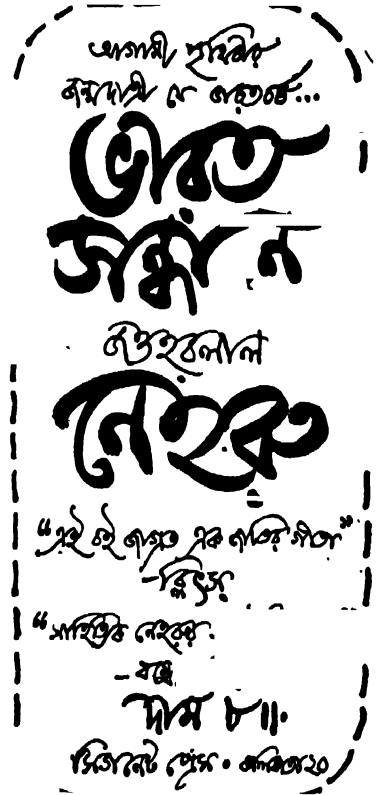 আগামী পৃথিবীর
জন্মদাত্রী যে ভারতবর্ষ...
ভারত
সন্ধান
জওহরলাল
নেহরু
“এই বই জাগ্রত এক জাতির গীতা”
—ব্লিৎস
“সাহিত্যিক নেহরুর
দাম ৮৷৷০
সিগনেট প্রেস • কলিকাতা ২০